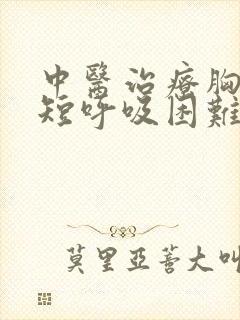 中醫治療胸
短呼吸困難
莫里亞蒈大叫